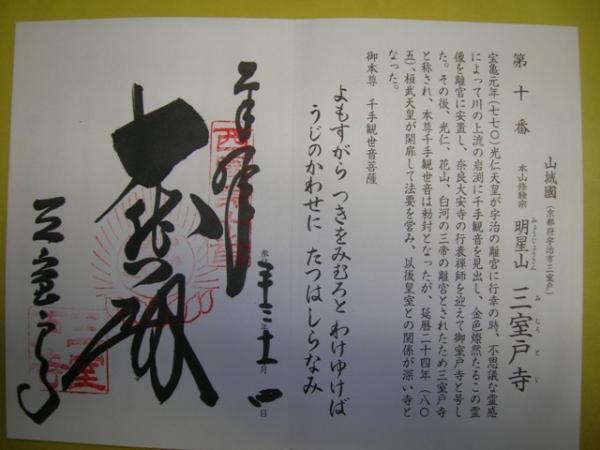 第十番
山城國（京都府宇治市三室戸）
本山修験宗 明星山 三室戸寺
みょうじょうざん
みむろとじ
宝亀元年（七七〇）光仁天皇が宇治の離宮に行幸の時、不思議な霊感
によって川の上流の岩渕に千手観音を見出し、金色燦然たるこの霊
像を離宮に安置し、奈良大安寺の行表禅師を迎えて御室戸寺と号し
た。その後、光仁、花山、白河の三帝の離宮とされたため三室戸寺
と称され、本尊千手観世音は勅封となったが、延暦二十四年（八〇
五）、桓武天皇が開扉して法要を営み、以後皇室との関係が深い寺と
なった。
御本尊 千手観世音菩薩
よもすがら つきをみむろと わけゆけば
うじのかわせに たつはしらなみ
年 月 日
奉拝
三室戸寺